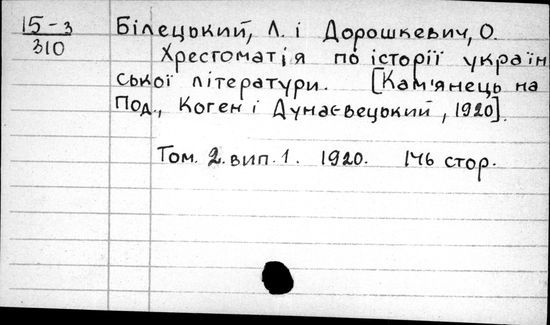 15-3
310
Білецький, Л. і Дорошкевич, О.
Хрестоматія по історії україн
ської літератури. [Кам'янець на
Под., Коген і Дунаєвецький, 1920].
Том. 2. вип. 1. 1920. 146 стор.